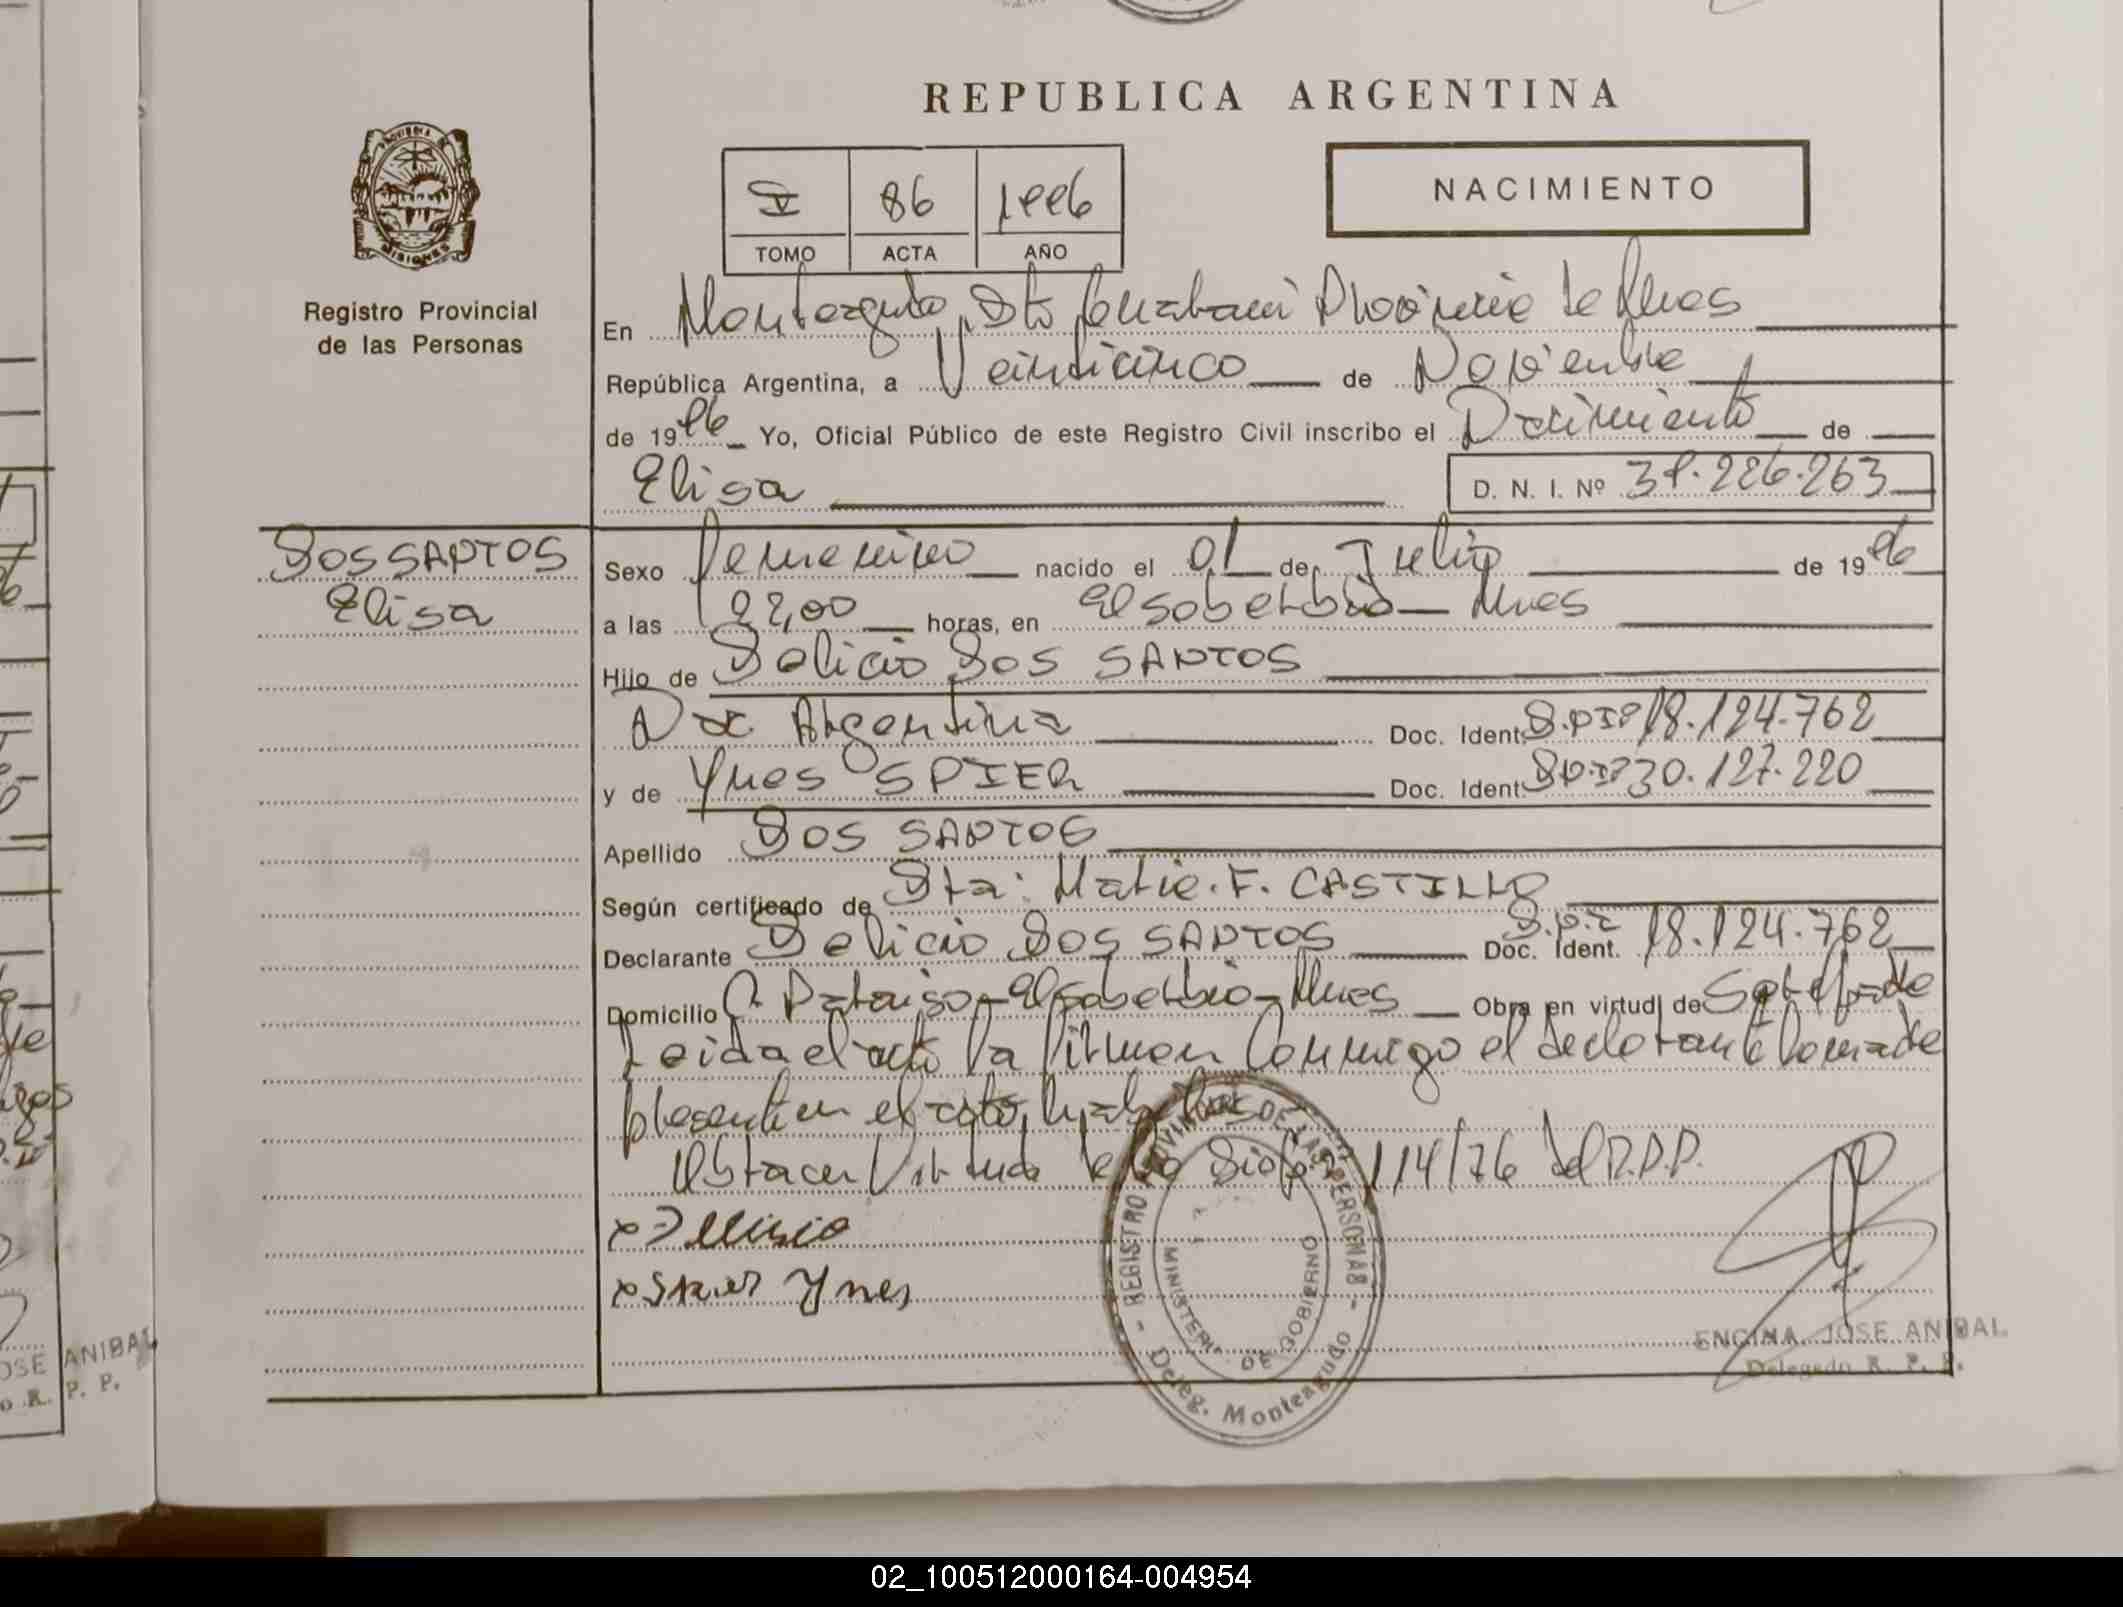 REPUBLICA ARGENTINA
PROVINCIA DE MISIONES
Registro Provincial
de las Personas
V 86
TOMO ACTA AÑO
NACIMIENTO
En Monteagudo, Dto Guarani Provincia de Mnes
República Argentina, a Veinticinco de Noviembre
de 19 Yo, Oficial Público de este Registro Civil inscribo el Nacimiento de
Elisa D. N. I. Nº
DOS SANTOS
Elisa
Sexo Femenino nacido el 01 de Julio de 19
a las 22,00 horas, en El Soberbio - Mnes
Hijo de Delicio DOS SANTOS
Nac Argentina Doc. Ident. D.N.I 18.124.762
y de Ynes SPIER Doc. Ident. D.N.I 30.127.220
Apellido DOS SANTOS
Según certificado de Dra: Maria.F. CASTILLO
Declarante Delicio DOS SANTOS Doc. Ident. D.N.I 18.124.762
Domicilio Paraiso - El Soberbio - Mnes Obra en virtud de
Leida el acta la firman Conmigo el declarante la madre
presente en el acto,
Obra en Virtud de la 114/76 del R.P.P.
Spier Ynes
REGISTRO PROVINCIAL DE LAS PERSONAS
MINISTERIO DE GOBIERNO
Deleg. Monteagudo
ENCINA JOSE ANIBAL
Delegado R. P. P.
OSE ANIBAL
o R. P. P.
02_100512000164-004954